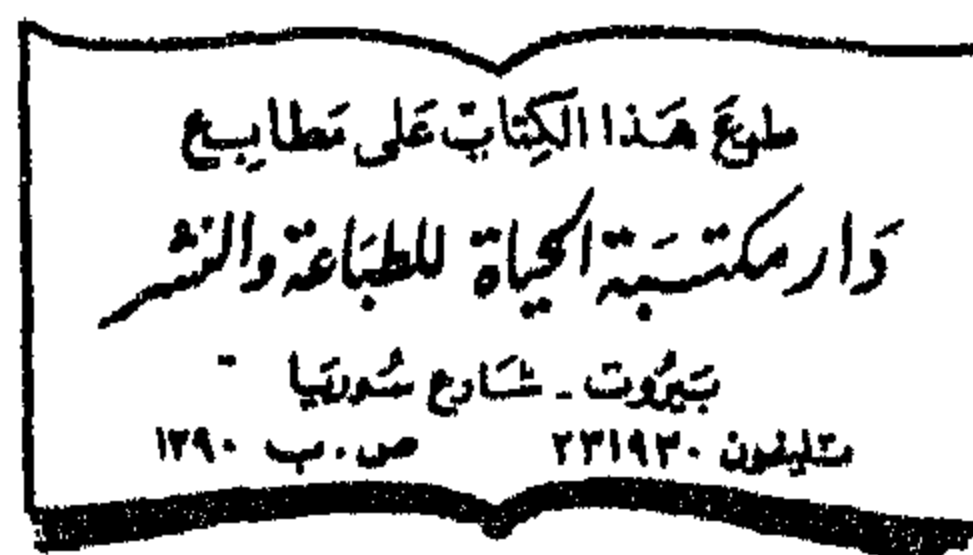 طبع هَذا الكِتابْ عَلى مَطابِع
دَار مكتَبَة الحيَاة للطبَاعة والنشر
بَيرُوت - شَارع سُوريَا
تليفون ٢٣١٩٣٠ ص.ب ١٣٩٠